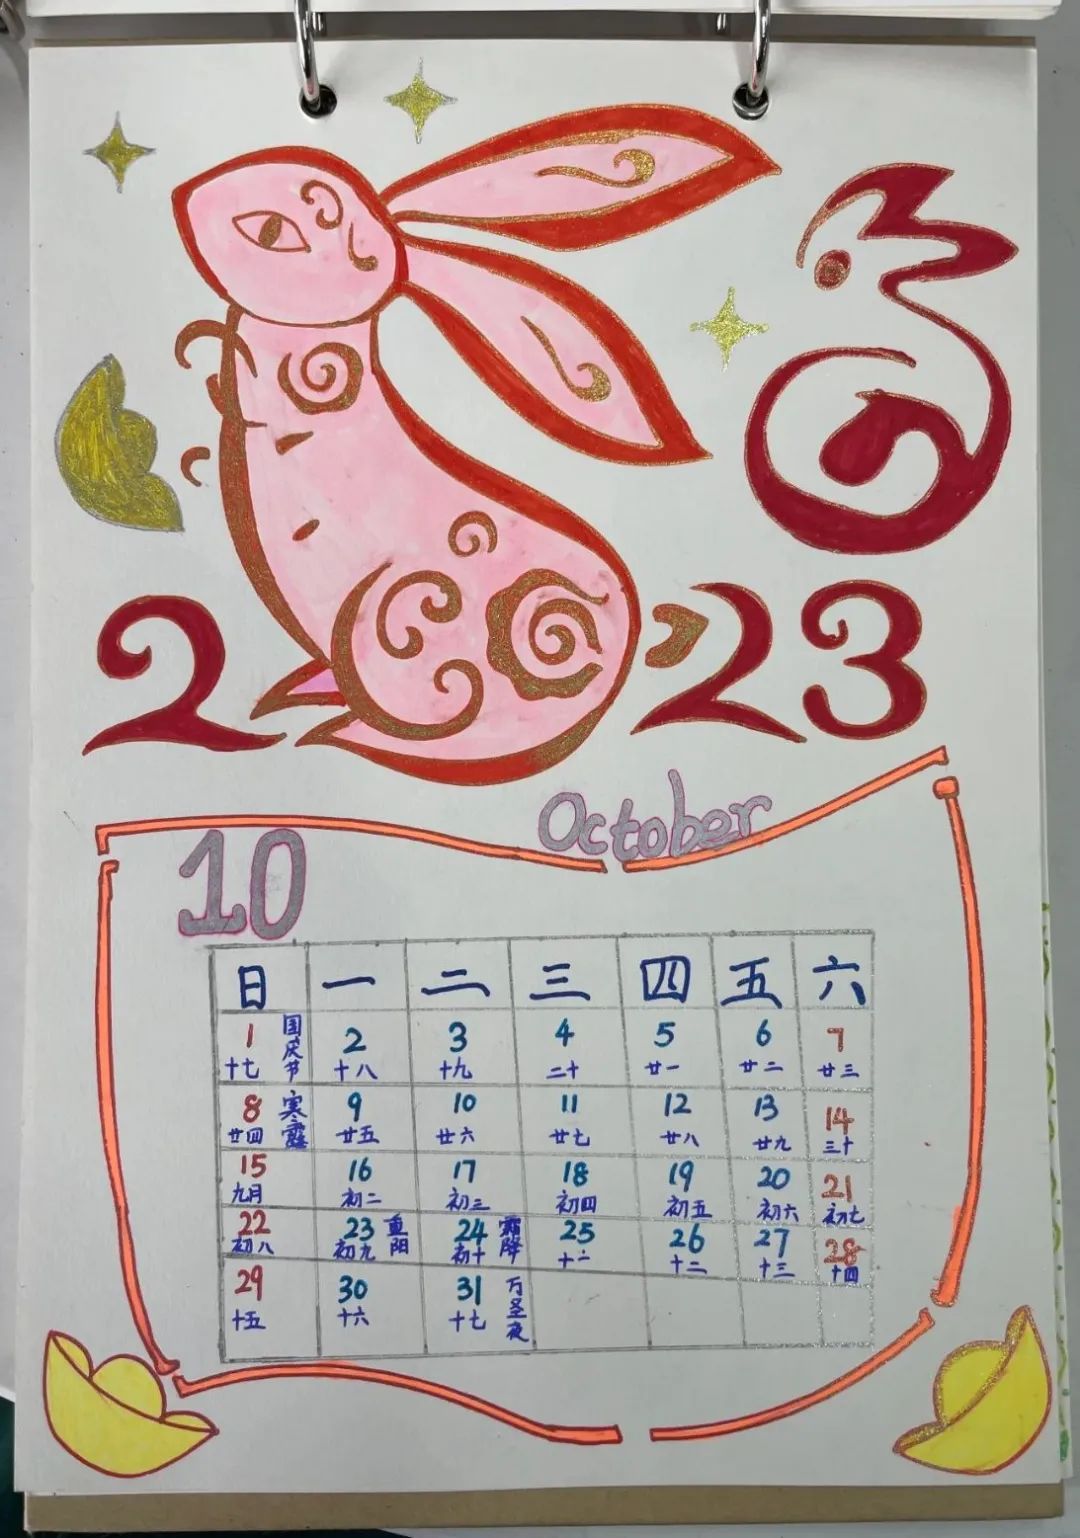 2 23
October
10
日 一 二 三 四 五 六
1 国庆节 2 3 4 5 6 7
十七 十八 十九 二十 廿一 廿二 廿三
8 寒露 9 10 11 12 13 14
廿四 廿五 廿六 廿七 廿八 廿九 三十
15 16 17 18 19 20 21
九月 初二 初三 初四 初五 初六 初七
22 23 重阳 24 霜降 25 26 27 28
初八 初九 初十 十一 十二 十三 十四
29 30 31 万圣夜
十五 十六 十七